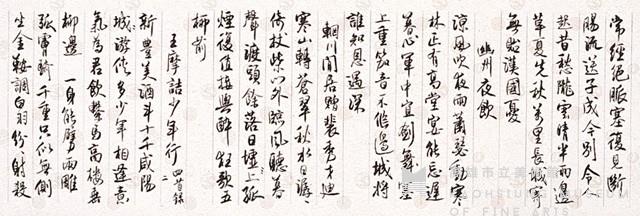 常經絕脈塞復見斷
腸流送子成今別令人
起昔愁隴雲晴半雨邊
草夏先秋萬里長城寄
無貽漢國憂
幽州夜飲
涼風吹夜雨蕭瑟動寒
林正有高堂宴能忘遲
暮心軍中宜劍舞塞
上重笳音不作邊城將
誰知恩遇深
輞川閒居贈裴秀才迪
寒山轉蒼翠秋水日潺
倚杖柴門外臨風聽暮
蟬渡頭餘落日墟上孤
煙復值接輿醉狂歌五
柳前
王摩詰少年行 四首錄二
新豐美酒斗十千咸陽
城游俠多少年相逢意
氣為君飲繫馬高樓垂
柳邊 一身能擘兩雕
弧虜騎千重只似無側
坐金鞍調白羽紛紛射殺
高雄市立美術館
KAOHSIUNG MUSEUM
OF FINE ARTS